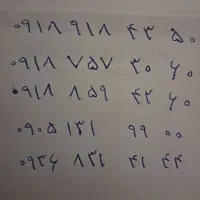 ۰۹۱۸ ۹۱۸ ۴۳ ۵۰
۰۹۱۸ ۷۵۷ ۳۰ ۶۰
۰۹۱۸ ۸۵۹ ۴۲ ۶۰
۰۹۰۵ ۱۳۱ ۹۹ ۰۰
۰۹۳۶ ۸۳۱ ۴۱ ۴۴